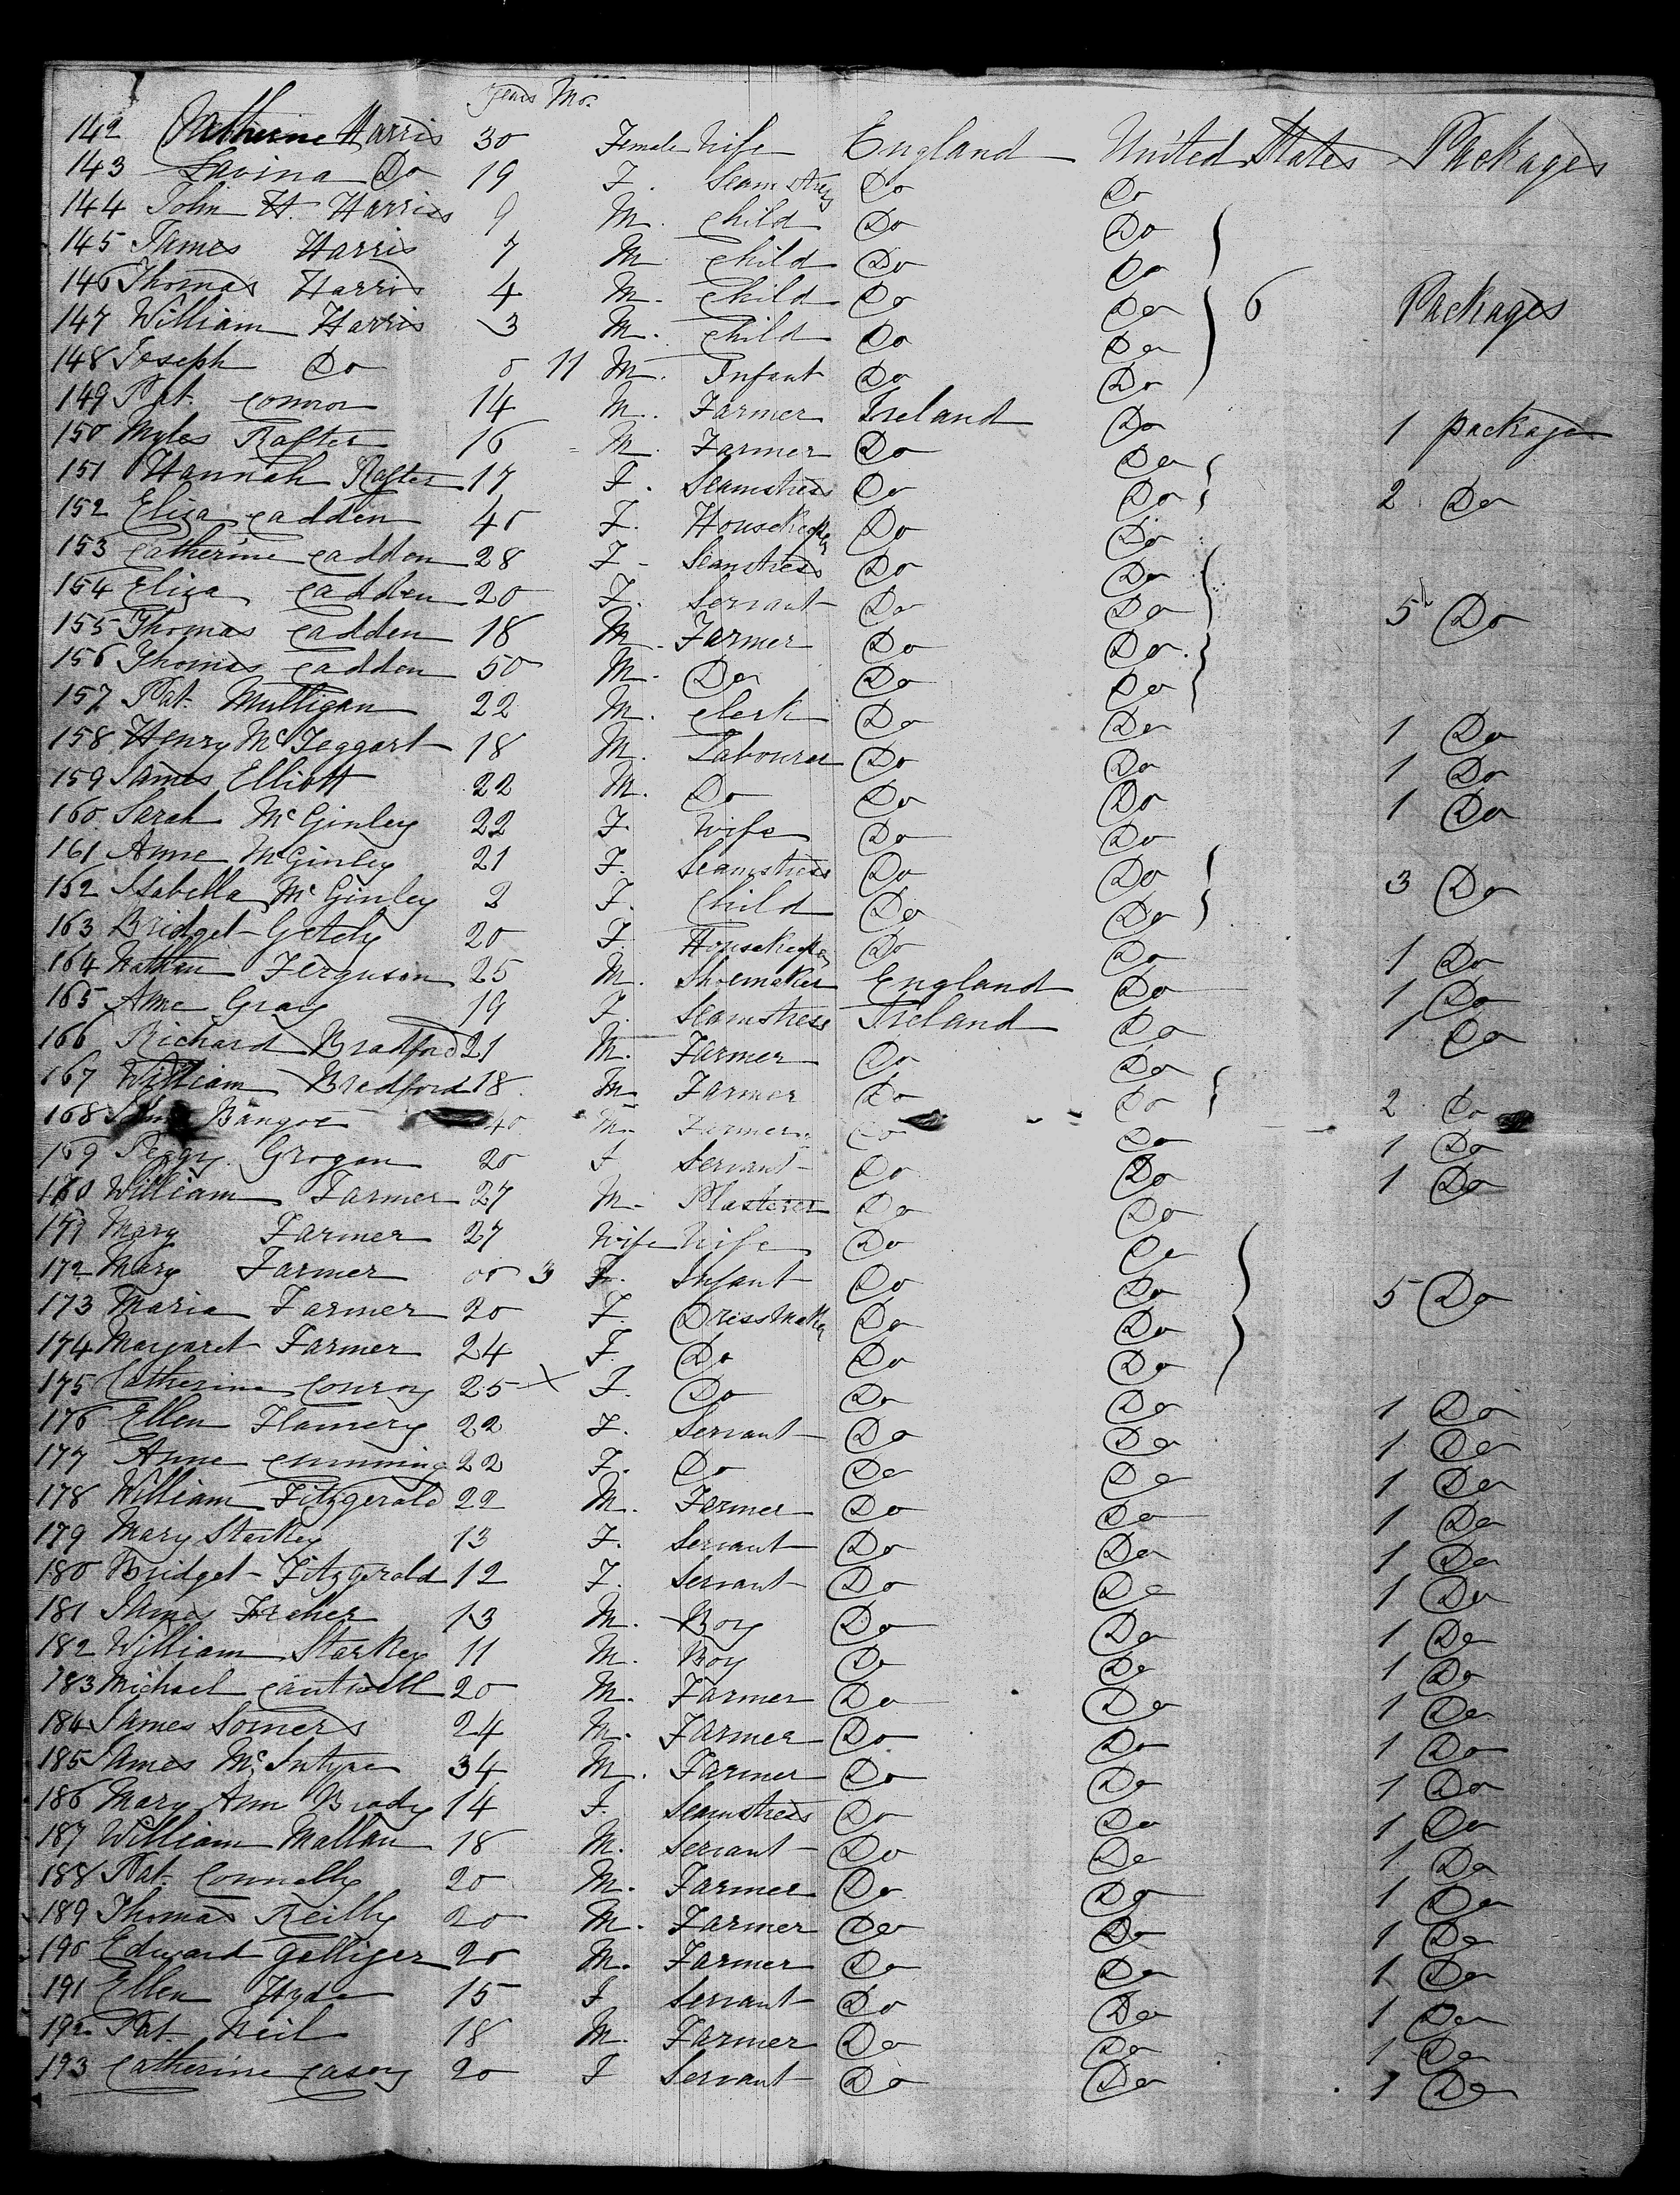 Years Mos
142 Catherine Harris 30 Female Wife England United States Packages
143 Lavina Do 19 F. Seamstress Do Do
144 John H. Harris 9 M. Child Do Do
145 James Harris 7 M Child Do Do
146 Thomas Harris 4 M. Child Do Do 6 Packages
147 William Harris 3 M. Child Do Do
148 Joseph Do 0 11 M. Infant Do Do
149 Pat. Connor 14 M. Farmer Ireland Do 1 package
150 Myles Rafter 16 M. Farmer Do Do
151 Hannah Rafter 17 F. Seamstress Do Do 2 Do
152 Eliza Cadden 45 F. Housekeeper Do Do
153 Catherine Cadden 28 F. Seamstress Do Do
154 Eliza Cadden 20 F. Servant Do Do 5 Do
155 Thomas Cadden 18 M. Farmer Do Do
156 Thomas Cadden 50 M. Do Do Do
157 Pat. Mulligan 22 M. Clerk Do Do 1 Do
158 Henry McTeggart 18 M. Labourer Do Do 1 Do
159 James Elliott 22 M. Do Do Do 1 Do
160 Sarah McGinley 22 F. Wife Do Do
161 Anne McGinley 21 F. Seamstress Do Do 3 Do
162 Isabella McGinley 2 F. Child Do Do
163 Bridget 20 F. Housekeeper Do Do 1 Do
164 Nathan Ferguson 25 M. Shoemaker England Do 1 Do
165 Anne Gray 19 F. Seamstress Ireland Do 1 Do
166 Richard Bradford 21 M. Farmer Do Do
167 William Bradford 18 M Farmer Do Do 2 Do
168 Bangor 40 M. Farmer Do Do 1 Do
169 Peggy Grogan 20 F Servant Do Do 1 Do
170 William Farmer 27 M. Plasterer Do Do
171 Mary Farmer 27 Wife Wife Do Do
172 Mary Farmer 00 3 F. Infant Do Do 5 Do
173 Maria Farmer 20 F. Dressmaker Do Do
174 Margaret Farmer 24 F. Do Do Do
175 Catherine Conroy 25 X F. Do Do Do 1 Do
176 Ellen Flannery 22 F. Servant Do Do 1 Do
177 Anne Cumming 22 F. Do Do Do 1 Do
178 William Fitzgerald 22 M. Farmer Do Do 1 Do
179 Mary Starkey 13 F. Servant Do Do 1 Do
180 Bridget Fitzgerald 12 F. Servant Do Do 1 Do
181 James Freher 13 M. Boy Do Do 1 Do
182 William Starkey 11 M. Boy Do Do 1 Do
183 Michael Cantwell 20 M. Farmer Do Do 1 Do
184 James Somers 24 M. Farmer Do Do 1 Do
185 James McIntyre 34 M. Farmer Do Do 1 Do
186 Mary Ann Brady 14 F. Seamstress Do Do 1 Do
187 William Mallan 18 M. Servant Do Do 1 Do
188 Pat. Connelly 20 M. Farmer Do Do 1 Do
189 Thomas Reilly 20 M. Farmer Do Do 1 Do
190 Edward Galliger 20 M. Farmer Do Do 1 Do
191 Ellen Hyde 15 F Servant Do Do 1 Do
192 Pat. Neil 18 M. Farmer Do Do 1 Do
193 Catherine Casey 20 F Servant Do Do 1 Do